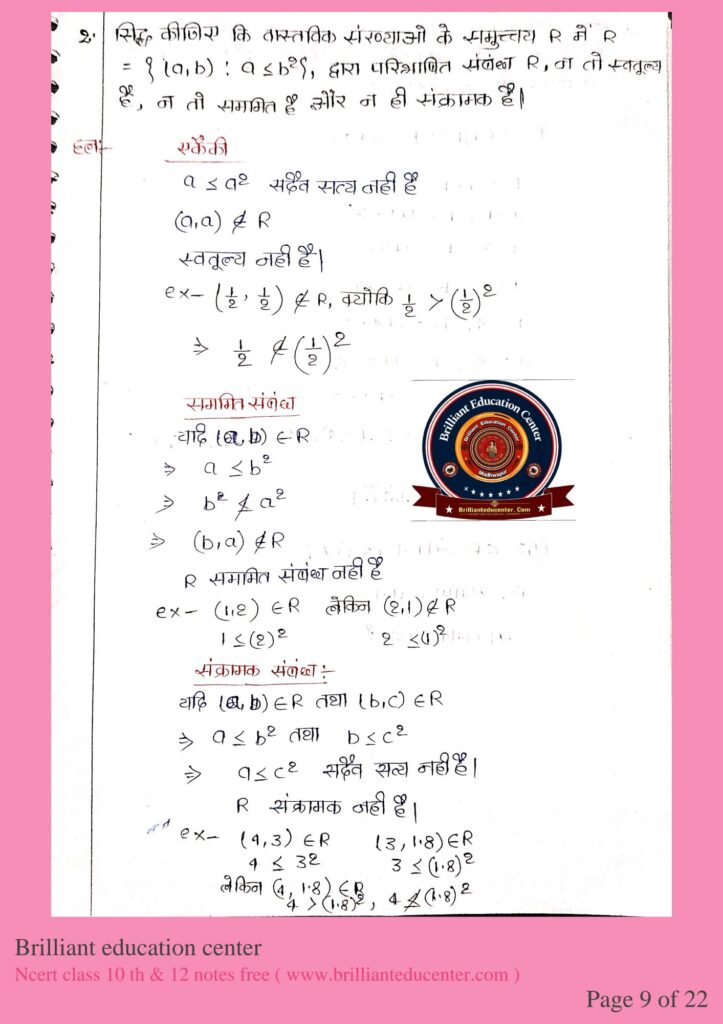 2. सिद्ध कीजिए कि वास्तविक संख्याओ के समुच्चय R में R
= {(a,b) : a ≤ b²}, द्वारा परिभाषित संबंध R, न तो स्वतुल्य
है, न तो सममित है और न ही संक्रामक है।
हल:-
a ≤ a² सदैव सत्य नही है
(a,a) ∉ R
स्वतुल्य नही है।
ex- (1/2, 1/2) ∉ R, क्योकि 1/2 > (1/2)²
⇒ 1/2 ≰ (1/2)²
सममित संबंध
यदि (a,b) ∈ R
⇒ a ≤ b²
⇒ b² ≰ a²
⇒ (b,a) ∉ R
R सममित संबंध नही है
ex- (1,2) ∈ R लेकिन (2,1) ∉ R
1 ≤ (2)² 2 ≤ (1)²
संक्रामक संबंध :-
यदि (a,b) ∈ R तथा (b,c) ∈ R
⇒ a ≤ b² तथा b ≤ c²
⇒ a ≤ c² सदैव सत्य नही है।
R संक्रामक नही है।
ex- (4,3) ∈ R (3,1.8) ∈ R
4 ≤ 3² 3 ≤ (1.8)²
लेकिन (4, 1.8) ∈ R
4 > (1.8)², 4 ≰ (1.8)²
Brilliant Education Center
Brilliant Education Center
Madhwapur
Brillianteducenter. Com
Brilliant education center
Ncert class 10 th & 12 notes free ( www.brillianteducenter.com )
Page 9 of 22